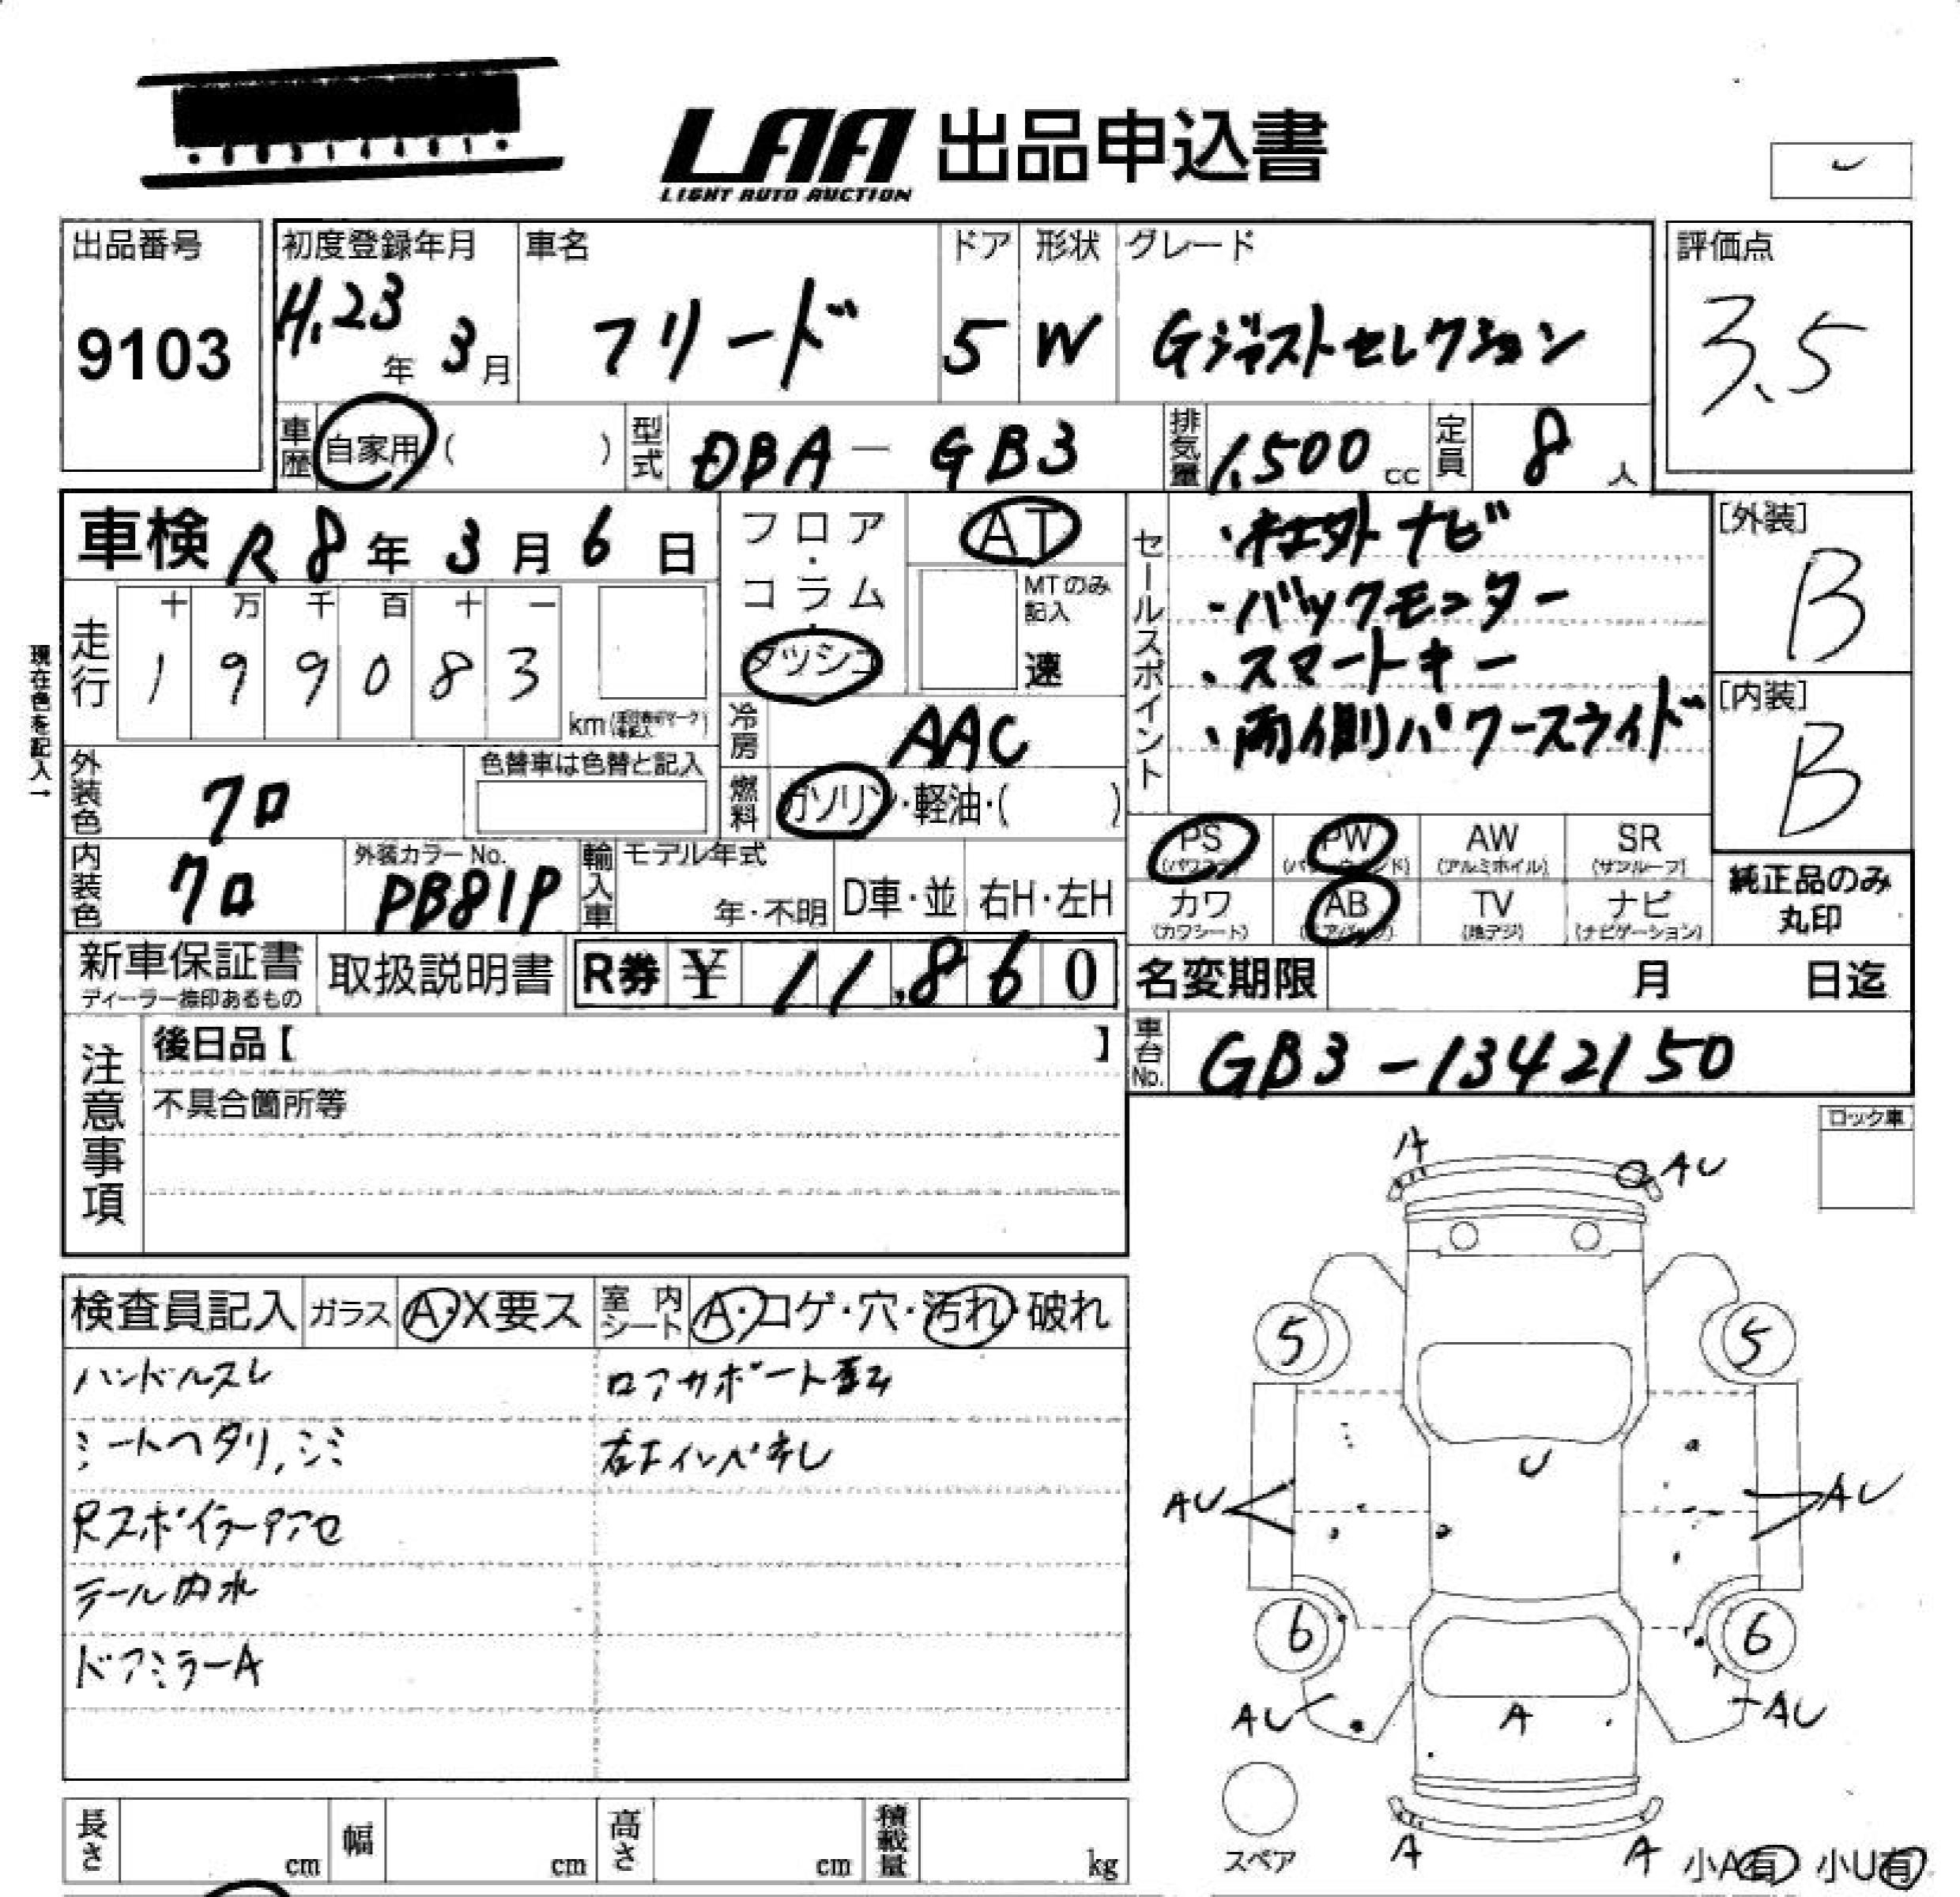 LAA 出品申込書
LIGHT AUTO AUCTION
出品番号
9103
初度登録年月
H.23年 3月
車名
フリード
ドア
5
形状
W
グレード
Gジャストセレクション
評価点
3.5
車歴 自家用 ( )
型式 DBA-GB3
排気量 1,500 cc
定員 8人
車検 R8年3月6日
フロア・コラム・ダッシュ
AT
MTのみ記入
速
走行
十 万 千 百 十 一
1 9 9 0 8 3
km
現在色を記入→
冷房 AAC
燃料 ガソリン・軽油・( )
外装色 クロ
色替車は色替と記入
内装色 クロ
外装カラーNo.
PB81P
輸入車
モデル年式
年・不明
D車・並
右H・左H
セールスポイント
・社外ナビ
・バックモニター
・スマートキー
・両側パワースライド
[外装]
B
[内装]
B
PS (パワステ)
PW (パワーウインド)
AW (アルミホイル)
SR (サンルーフ)
カワ (カワシート)
AB (エアバッグ)
TV (地デジ)
ナビ (ナビゲーション)
純正品のみ
丸印
新車保証書
ディーラー捺印あるもの
取扱説明書
R券 ¥ 11,860
名変期限 月 日迄
車台No. GB3-1342150
注意事項
後日品【 】
不具合箇所等
ロック車
検査員記入
ガラス A・X要ス
室内シート A・コゲ・穴・汚れ・破れ
ハンドルスレ
シートヘタリ,シミ
Rスポイラーアセ
テール内水
ドアミラーA
ロアサポート歪み
A
AU
5
5
U
AU
AU
6
6
AU
A
AU
スペア
A
A
小A有 小U有
長さ cm
幅 cm
高さ cm
積載量 kg